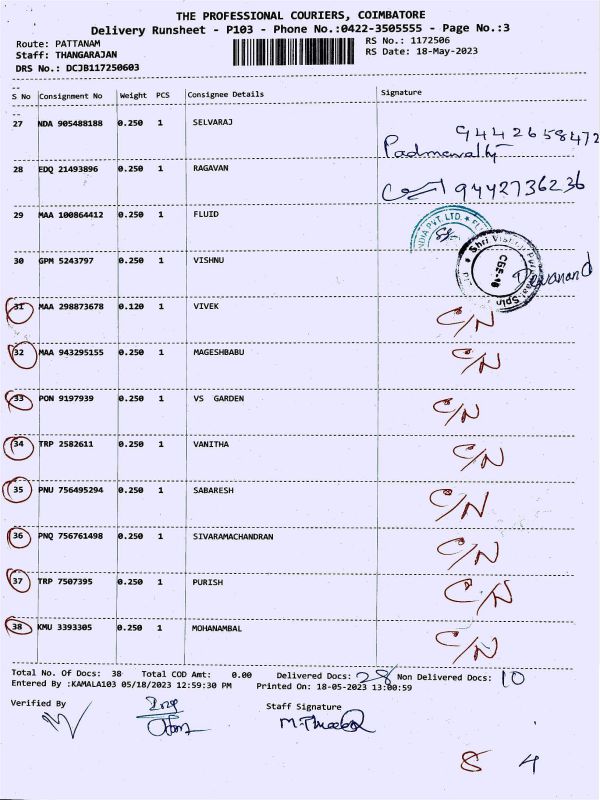 THE PROFESSIONAL COURIERS, COIMBATORE
Delivery Runsheet - P103 - Phone No.:0422-3505555 - Page No.:3
Route: PATTANAM
RS No.: 1172506
Staff: THANGARAJAN
RS Date: 18-May-2023
DRS No.: DCJB117250603
S No Consignment No Weight PCS Consignee Details Signature
27 NDA 905488188 0.250 1 SELVARAJ
9442658472
Padmavathy
28 EDQ 21493896 0.250 1 RAGAVAN
9442736236
29 MAA 100864412 0.250 1 FLUID
INDIA PVT. LTD.
30 GPM 5243797 0.250 1 VISHNU
Shri Vishnu
CBE-16
Devanand
31 MAA 298873678 0.120 1 VIVEK C/N
32 MAA 943295155 0.250 1 MAGESHBABU C/N
33 PON 9197939 0.250 1 VS GARDEN C/N
34 TRP 2582611 0.250 1 VANITHA C/N
35 PNU 756495294 0.250 1 SABARESH C/N
36 PNQ 756761498 0.250 1 SIVARAMACHANDRAN C/N
37 TRP 7507395 0.250 1 PURISH C/N
38 KMU 3393305 0.250 1 MOHANAMBAL C/N
Total No. Of Docs: 38 Total COD Amt: 0.00 Delivered Docs: 28 Non Delivered Docs: 10
Entered By :KAMALA103 05/18/2023 12:59:30 PM Printed On: 18-05-2023 13:00:59
Verified By
Staff Signature
8 4